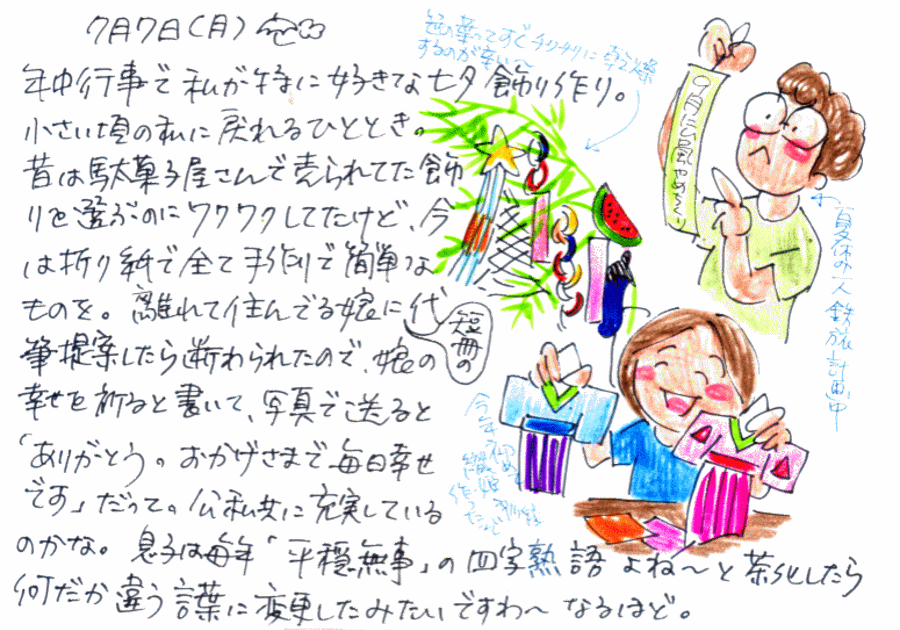 7月7日(月)
年中行事で私が特に好きな七夕飾り作り。
小さい頃の私に戻れるひととき。
昔は駄菓子屋さんで売られてた飾
りを選ぶのにワクワクしてたけど、今
は折り紙で全て手作りで簡単な
ものを。離れて住んでる娘に代
短冊の
筆提案したら断わられたので、娘の
幸せを祈ると書いて、写真で送ると
「ありがとう。おかげさまで毎日幸せ
です」だって。公私共に充実している
のかな。息子は毎年「平穏無事」の四字熟語よね〜と茶化したら
何だか違う言葉に変更したみたいですわ〜なるほど。
笹の葉ってすぐチリチリに乾燥
するのが辛い〜
夏休み一人鉄旅計画中